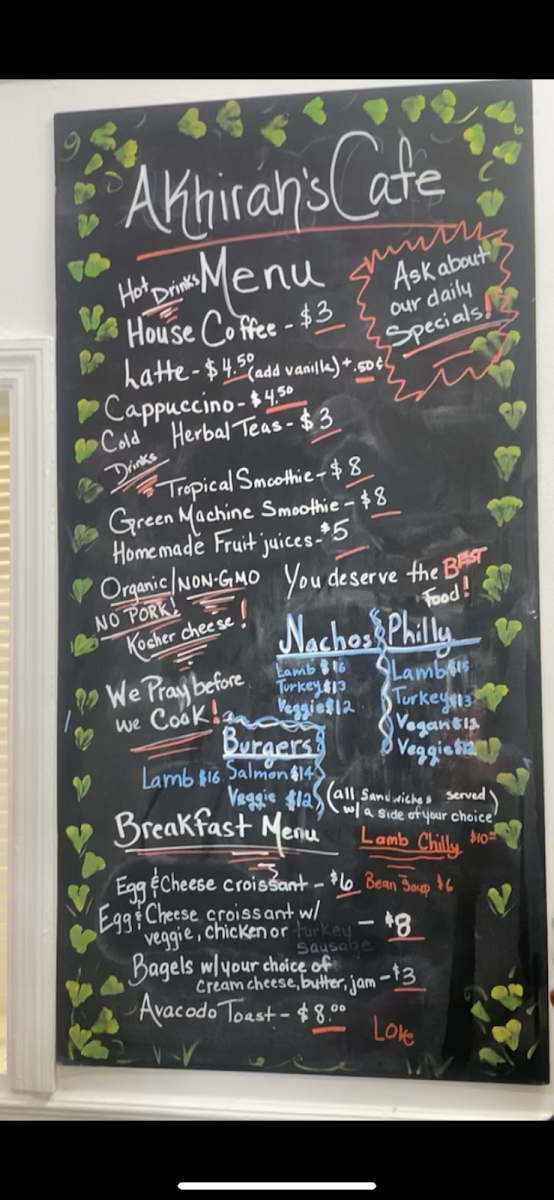 Akhirah's Cafe
Menu
Ask about
our daily
Specials!
Hot Drinks
House Coffee - $3
Latte - $4.50 (add vanilla) + .50¢
Cappuccino - $4.50
Herbal Teas - $3
Cold
Drinks
Tropical Smoothie - $8
Green Machine Smoothie - $8
Homemade Fruit juices - $5
Organic/NON-GMO
NO PORK!
Kosher cheese!
You deserve the BEST
Food!
We Pray before
we Cook!
Nachos
Lamb $16
Turkey $13
Veggie $12
Philly
Lamb $15
Turkey $13
Vegan $13
Veggie $12
Burgers
Lamb $16 Salmon $14
Veggie $12
(all Sandwiches served
w/a side of your choice)
Breakfast Menu
Lamb Chilly $10
Bean Soup $6
Egg & Cheese croissant - $6
Egg & Cheese croissant w/
veggie, chicken or turkey
sausage - $8
Bagels w/your choice of
cream cheese, butter, jam - $3
Avacodo Toast - $8.00
Love